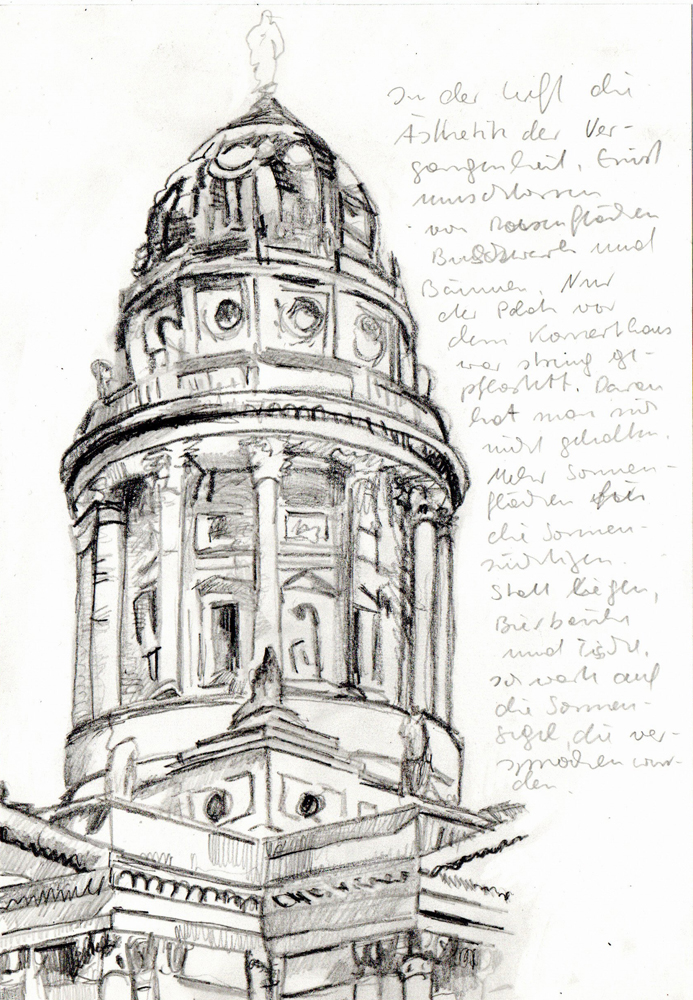 In der Luft die
Ästhetik der Ver-
gangenheit. Einst
umschlossen
von Rasenflächen
Buschwerk und
Bäumen. Nur
der Platz vor
dem Konzerthaus
war streng ge-
pflastert. Daran
hat man sich
nicht gehalten.
Mehr Sonnen-
flächen für
die Sonnen-
süchtigen.
Statt liegen,
Bierbänke
und Tische.
so wart auf
die Sonnen-
segel, die ver-
sprochen wur-
den.